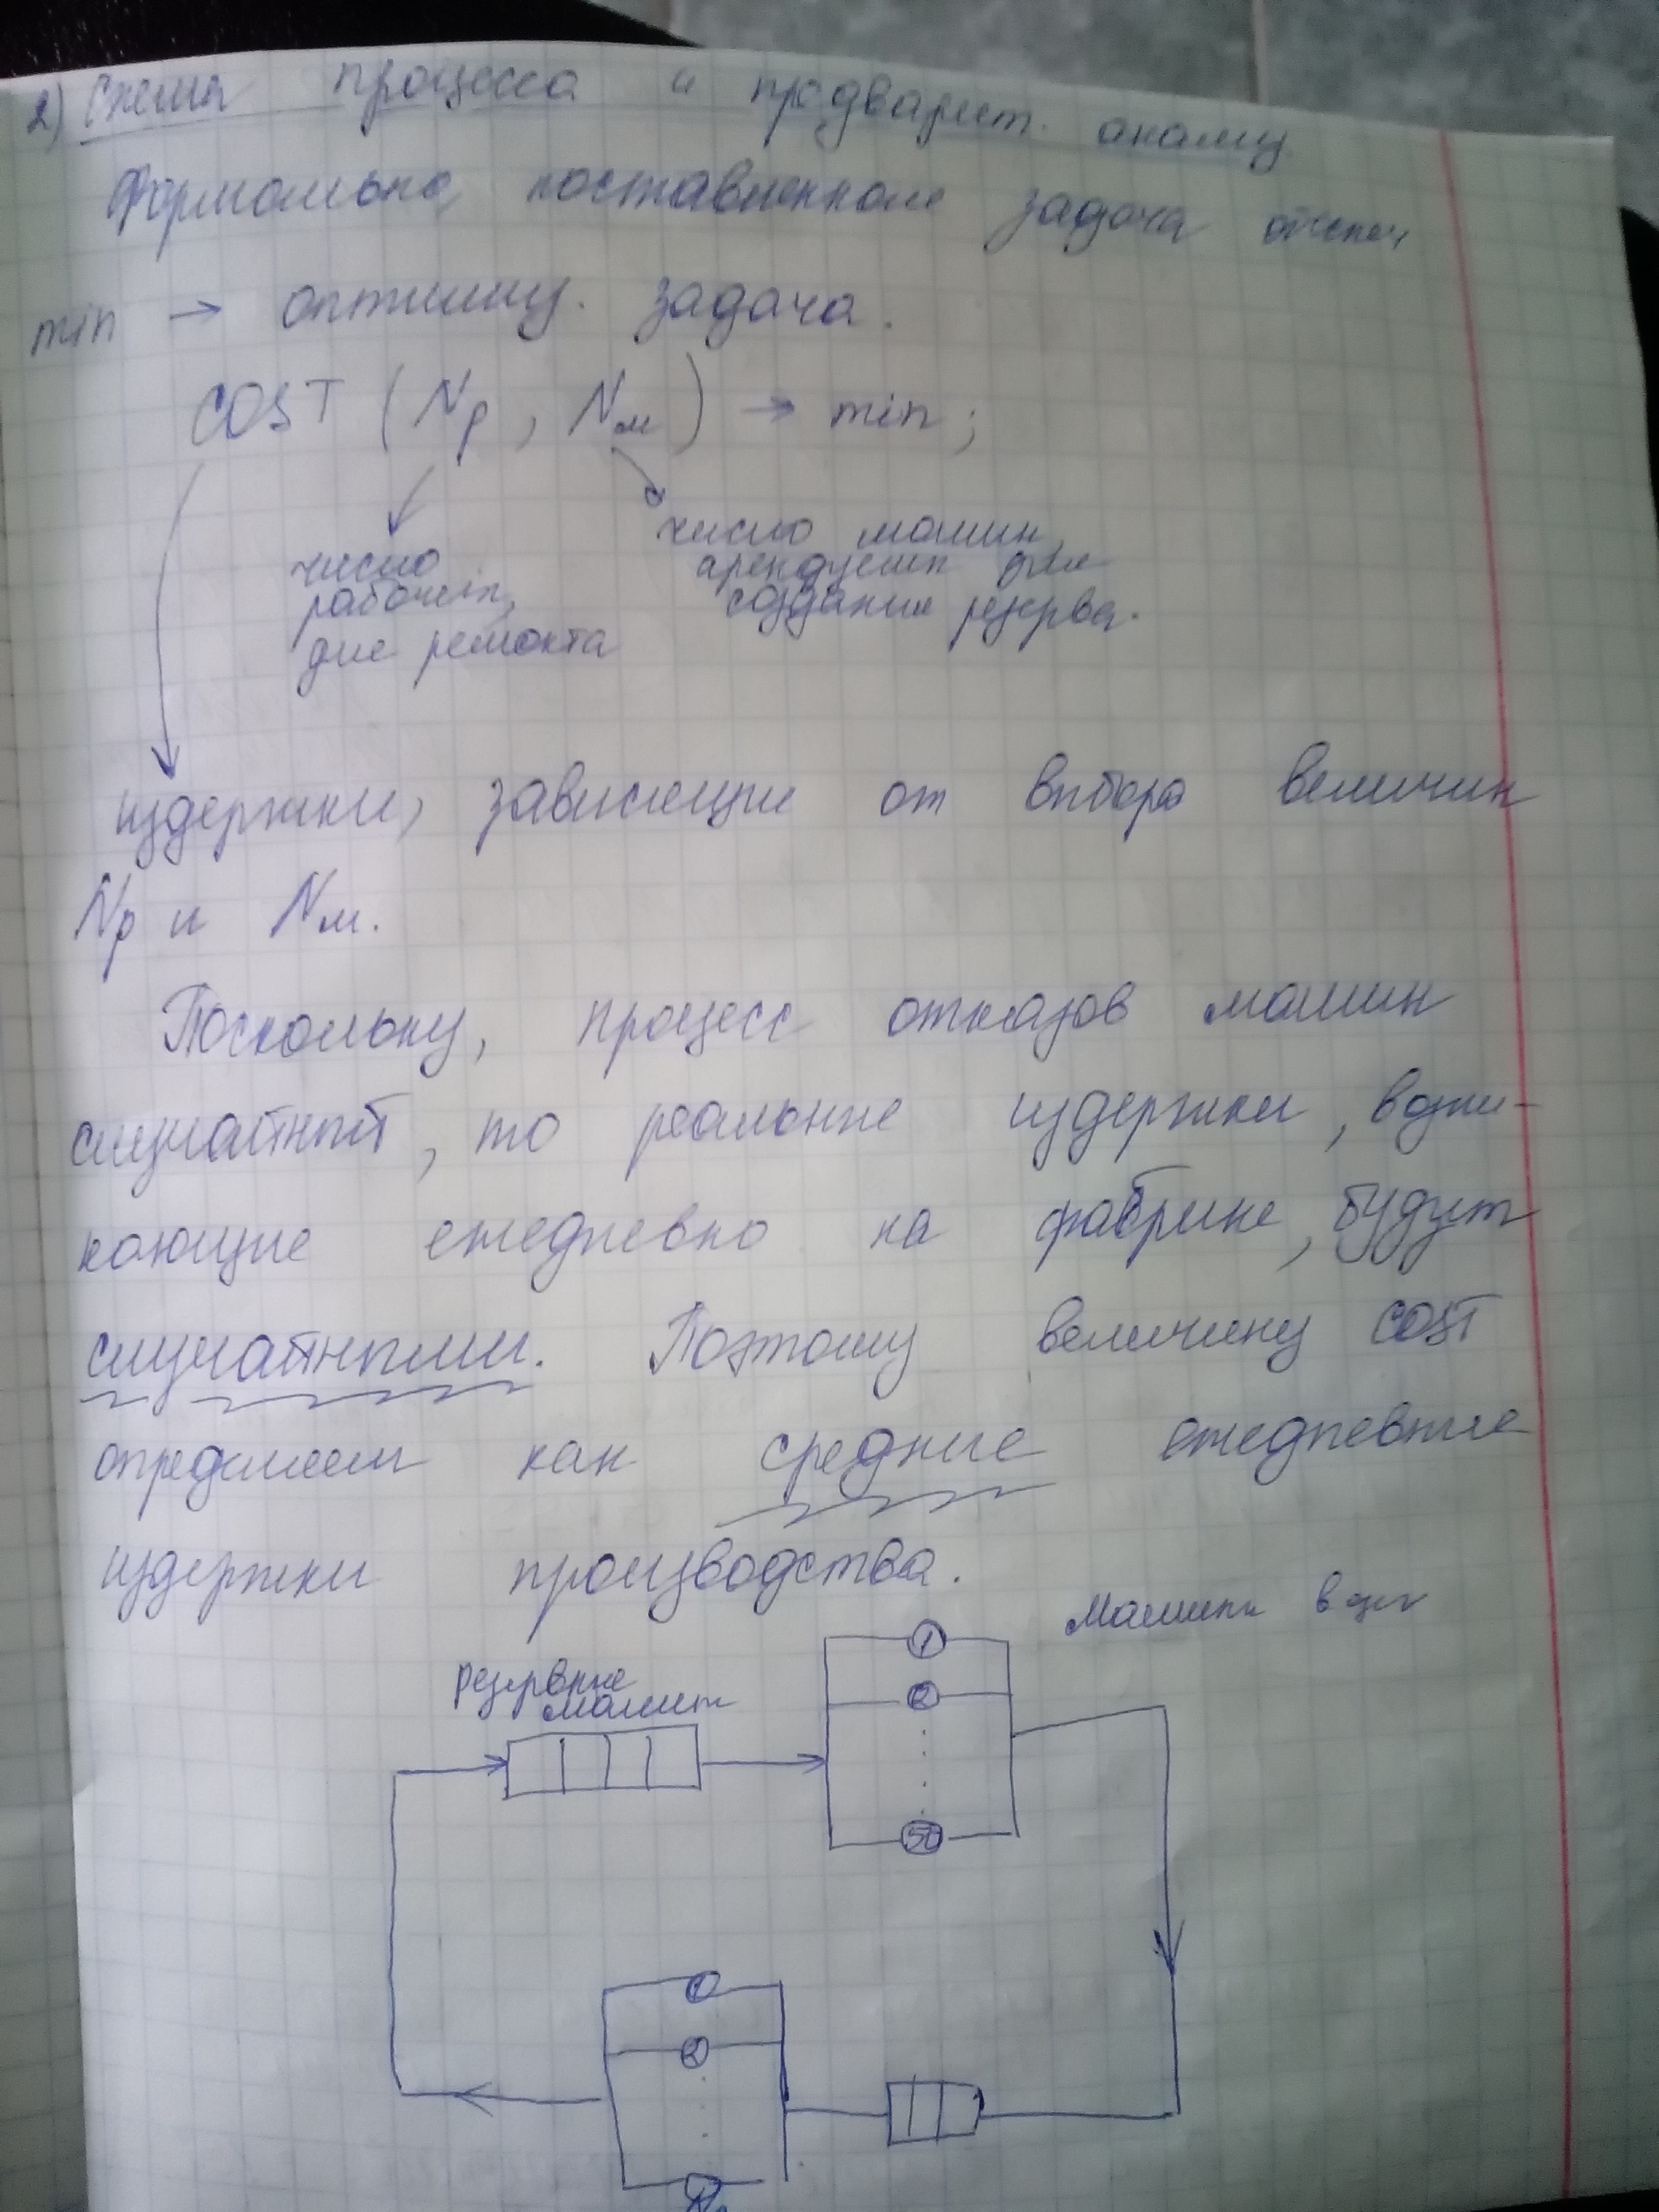 2) Схема процесса и предварит. анализ
Формально, поставленная задача
min → оптимиз. задача.
COST (Nр, Nм) → min;
число
рабочих,
для ремонта
число машин,
арендуемых для
создания резерва.
издержки, зависящие от выбора величин
Nр и Nм.
Поскольку, процесс отказов машин
случайный, то реальные издержки, возни-
кающие ежедневно на фабрике, будут
случайными. Поэтому величину COST
определяем как средние ежедневные
издержки производства.
Машины в
резервные
машины
1
2
50
1
2